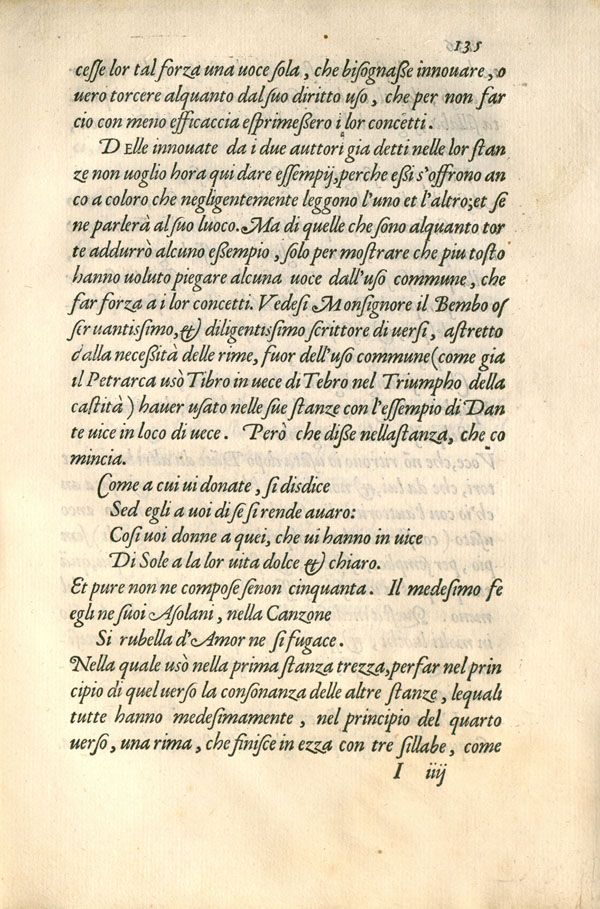 135
cesse lor tal forza una uoce sola, che bisognasse innouare, o
uero torcere alquanto dal suo diritto uso, che per non far
cio con meno efficaccia esprimessero i lor concetti.
DElle innouate da i due auttori gia detti nelle lor stan
ze non uoglio hora qui dare essempij, perche essi s'offrono an
co a coloro che negligentemente leggono l'uno et l'altro; et se
ne parlerà al suo luoco. Ma di quelle che sono alquanto tor
te addurrò alcuno essempio, solo per mostrare che piu tosto
hanno uoluto piegare alcuna uoce dall'uso commune, che
far forza a i lor concetti. Vedesi Monsignore il Bembo os
seruantissimo, & diligentissimo scrittore di uersi, astretto
dalla necessità delle rime, fuor dell'uso commune (come gia
il Petrarca usò Tibro in uece di Tebro nel Triumpho della
castità) hauer usato nelle sue stanze con l'essempio di Dan
te uice in loco di uece. Però che disse nella stanza, che co
mincia.
Come a cui ui donate, si disdice
Sed egli a uoi di se si rende auaro:
Cosi uoi donne a quei, che ui hanno in uice
Di Sole a la lor uita dolce & chiaro.
Et pure non ne compose senon cinquanta. Il medesimo fe
egli ne suoi Asolani, nella Canzone
Si rubella d'Amor ne si fugace.
Nella quale usò nella prima stanza trezza, per far nel prin
cipio di quel uerso la consonanza delle altre stanze, lequali
tutte hanno medesimamente, nel principio del quarto
uerso, una rima, che finisce in ezza con tre sillabe, come
I iiij